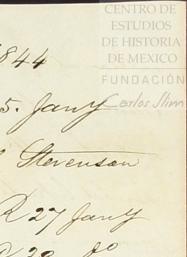 CENTRO DE
ESTUDIOS
DE HISTORIA
DE MEXICO
FUNDACIÓN
Carlos Slim
1844
5. Jany
Stevenson
R 27 Jany
do